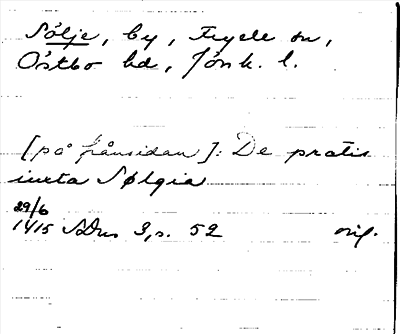 Sölje, by, Tryde sn,
Östbo hd, Jönk. l.
[på frånsidan]: De pratis
iuxta Sølgia
29/6
1415 SDns 3, s. 52 orig.